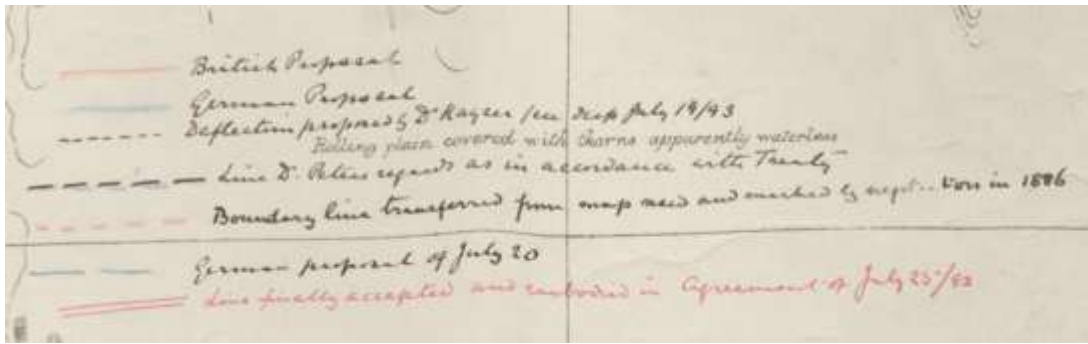 British Proposal
German Proposal
Deflection proposed by Dr Kayser see desp July 19/93
Rolling plain covered with thorns apparently waterless
Line Dr. Peters regards as in accordance with Treaty
Boundary line transferred from map used and marked by negotiators in 1886
German proposal of July 20
Line finally accepted and embodied in Agreement of July 25/93